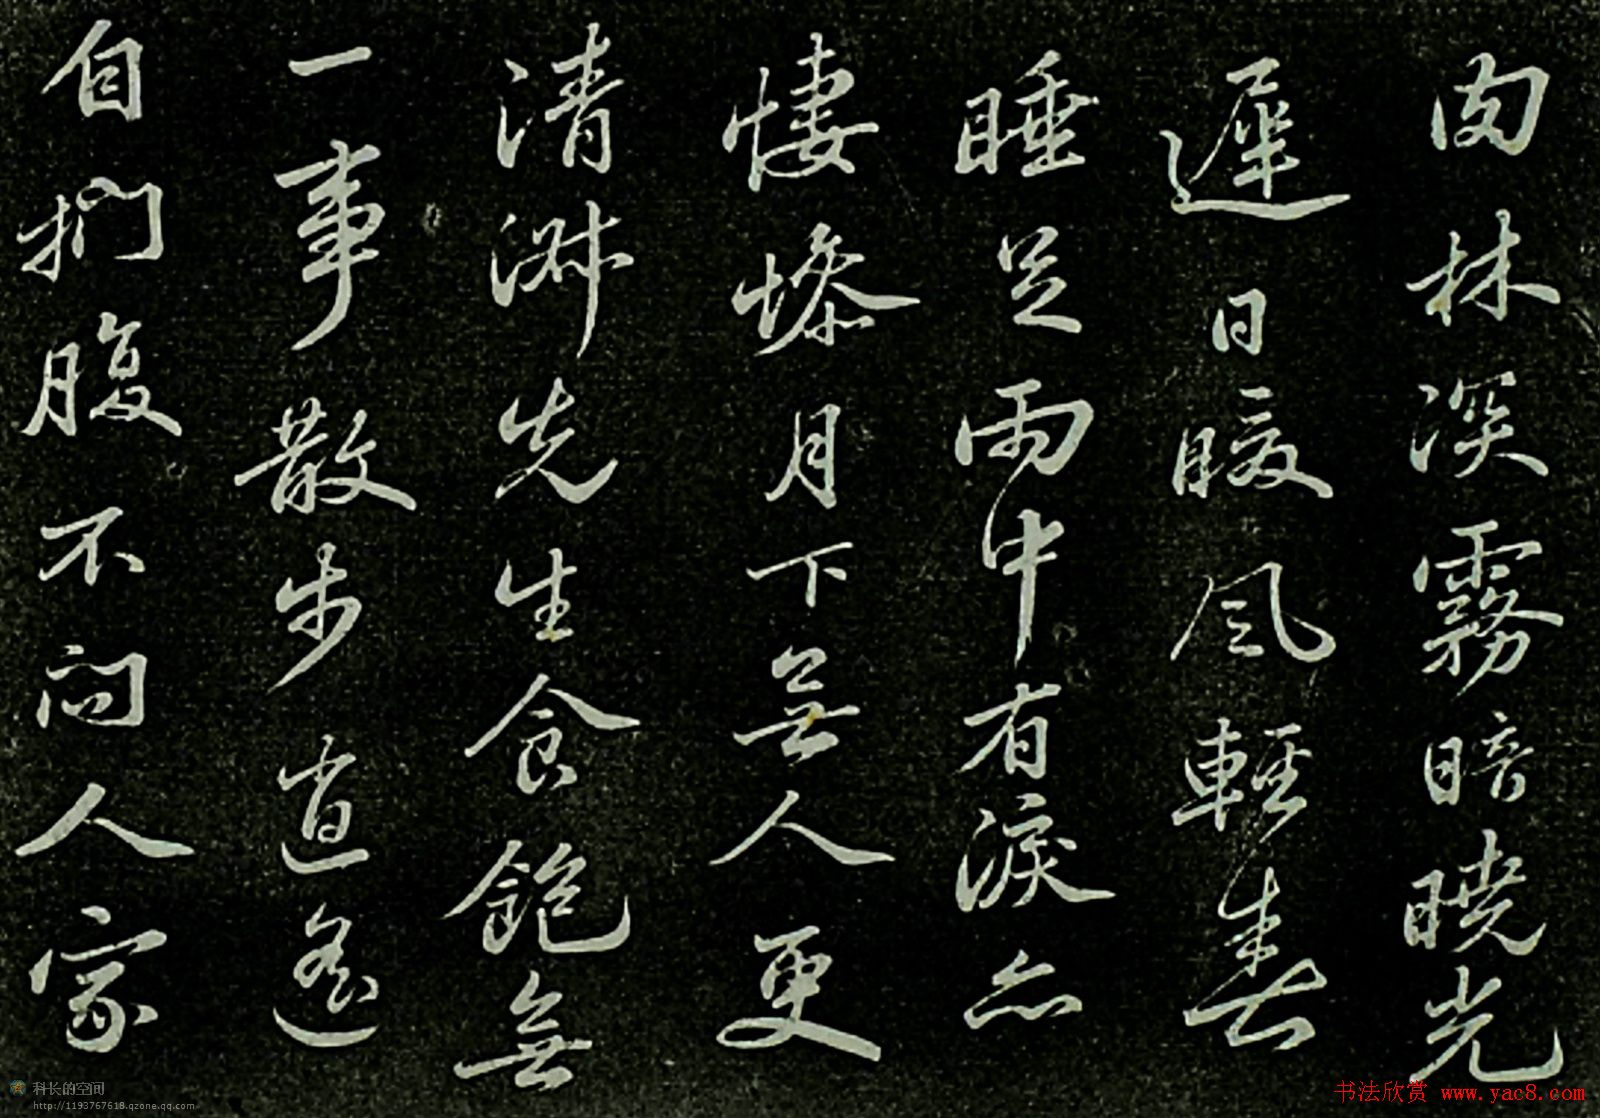 肉林深霧暗曉光
遲日暖風輕春
睡足雨中有淚亦
悽慘月下無人更
清淋先生食飽無
一事散步逍遙
自捫腹不問人家
科长的空间
http://1193767618.qzone.qq.com
书法欣赏 www.yac8.com